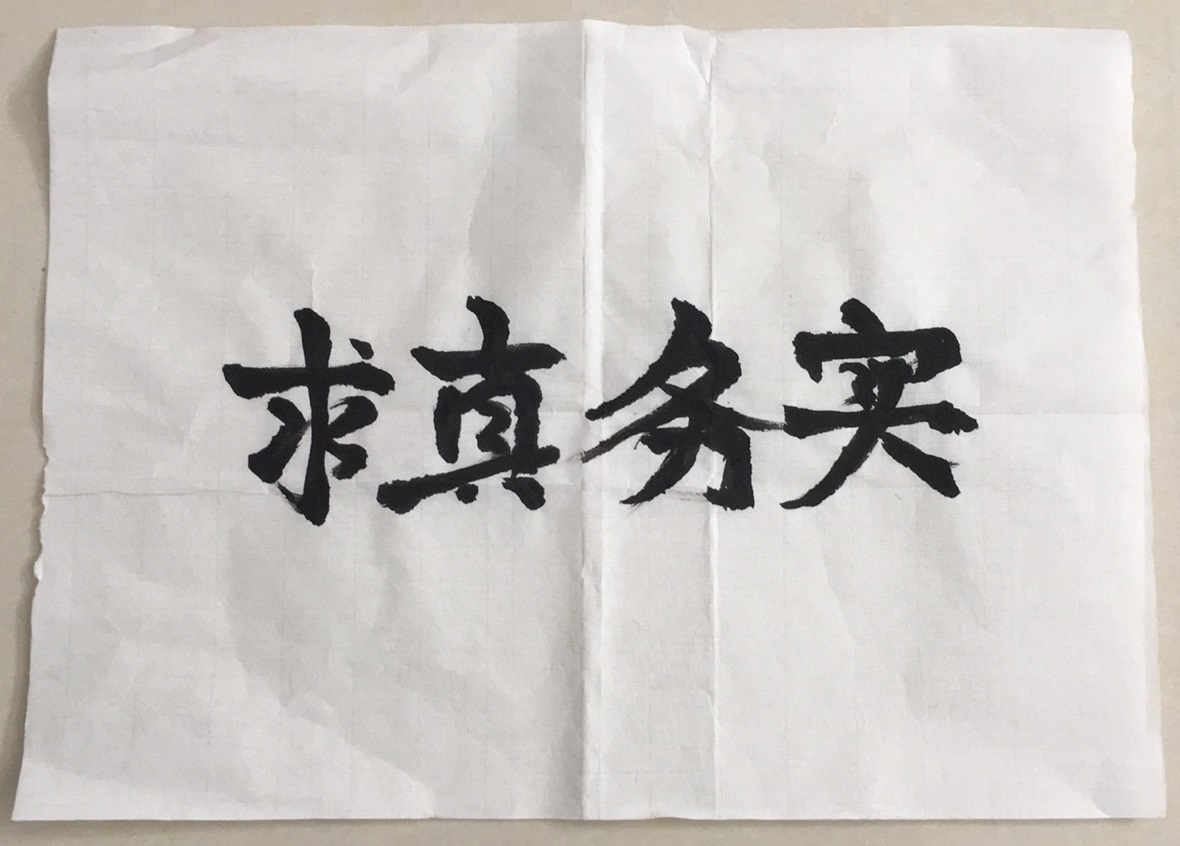 求真务实